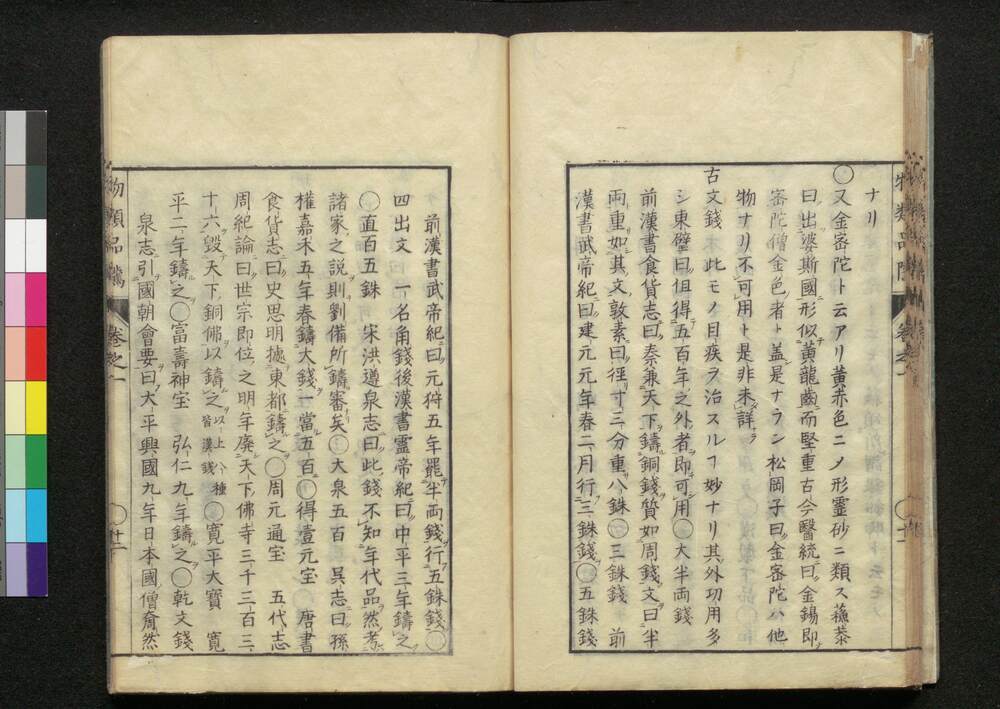 ナリ
〇又金密陀ト云アリ黄赤色ニノ形霊砂ニ類ス蘓恭
曰出婆斯國形似黄龍齒而堅重古今醫統曰金錫即
密陀僧金色者ト盖是ナラン松岡子曰金密陀ハ他
物ナリ不可用ト是非未詳
古文錢 此モノ目疾ヲ治スルヿ妙ナリ其外功用多
シ東璧曰但得五百年之外者即可用〇大半両錢
前漢書食貨志曰秦兼天下鑄銅錢質如周錢文曰半
兩重如其文敦素曰徑寸三分重八銖〇三銖錢 前
漢書武帝紀曰建元元年春二月行三銖錢〇五銖錢
物類品隲 卷之一
前漢書武帝紀曰元狩五年罷半両錢行五銖錢〇
四出文 一名角錢後漢書靈帝紀曰中平三年鑄之
〇直百五銖 宋洪遵泉志曰此錢不知年代品然考
諸家之説則劉備所鑄審矣〇大泉五百 呉志曰孫
權嘉禾五年春鑄大錢一當五百〇得壹元宝 唐書
食貨志曰史思明據東都鑄之〇周元通宝 五代志
周紀論曰世宗即位之明年廃天下佛寺三千三百三
十六毀天下銅佛以鑄之以上八種皆漢錢〇寛平大寶 寛
平二年鑄之〇富壽神宝 弘仁九年鑄之〇乾文錢
泉志引國朝會要曰大平興國九年日本國僧奝然
物類品隲 卷之一 十二